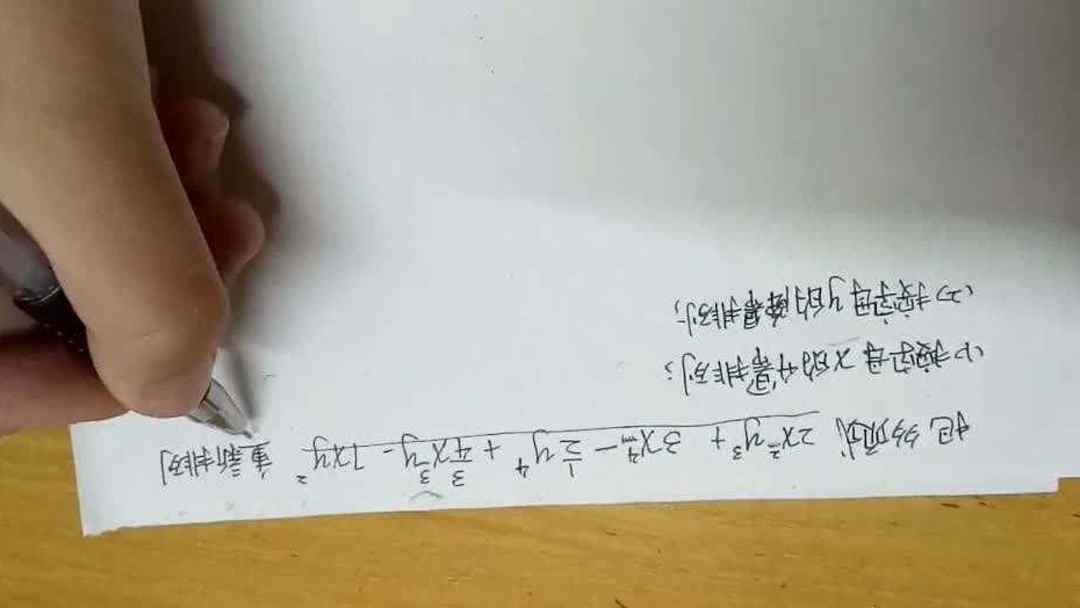 把多项式 2x²y³ + 3x⁴ − 1/2 y⁴ + 3/4 x³y − 7xy² 重新排列
(1) 按字母 x 的升幂排列;
(2) 按字母 y 的降幂排列;